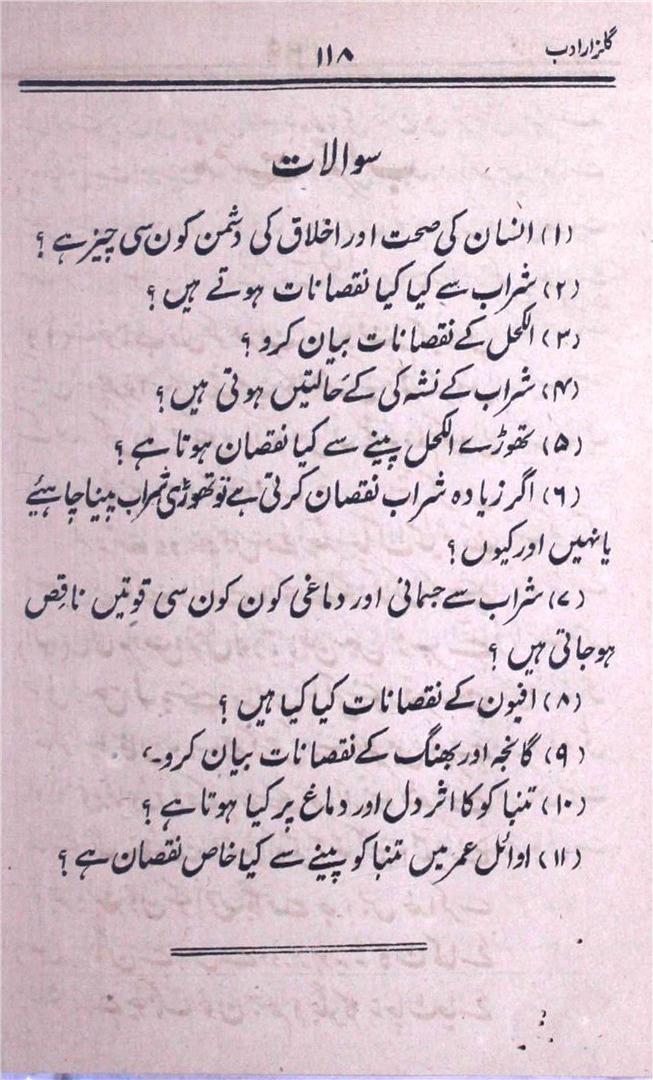 گلزار ادب
۱۱۸
سوالات
(۱) انسان کی صحت اور اخلاق کی دشمن کون سی چیز ہے ؟
(۲) شراب سے کیا کیا نقصانات ہوتے ہیں ؟
(۳) الکحل کے نقصانات بیان کرو ؟
(۴) شراب کے نشہ کی کے حالتیں ہوتی ہیں ؟
(۵) تھوڑے الکحل پینے سے کیا نقصان ہوتا ہے ؟
(۶) اگر زیادہ شراب نقصان کرتی ہے تو تھوڑی شراب پینا چاہئیے
یا نہیں اور کیوں ؟
(۷) شراب سے جسمانی اور دماغی کون کون سی قوتیں ناقص
ہو جاتی ہیں ؟
(۸) افیون کے نقصانات کیا کیا ہیں ؟
(۹) گانجہ اور بھنگ کے نقصانات بیان کرو ۔
(۱۰) تنباکو کا اثر دل اور دماغ پر کیا ہوتا ہے ؟
(۱۱) اوائل عمر میں تنباکو پینے سے کیا خاص نقصان ہے ؟